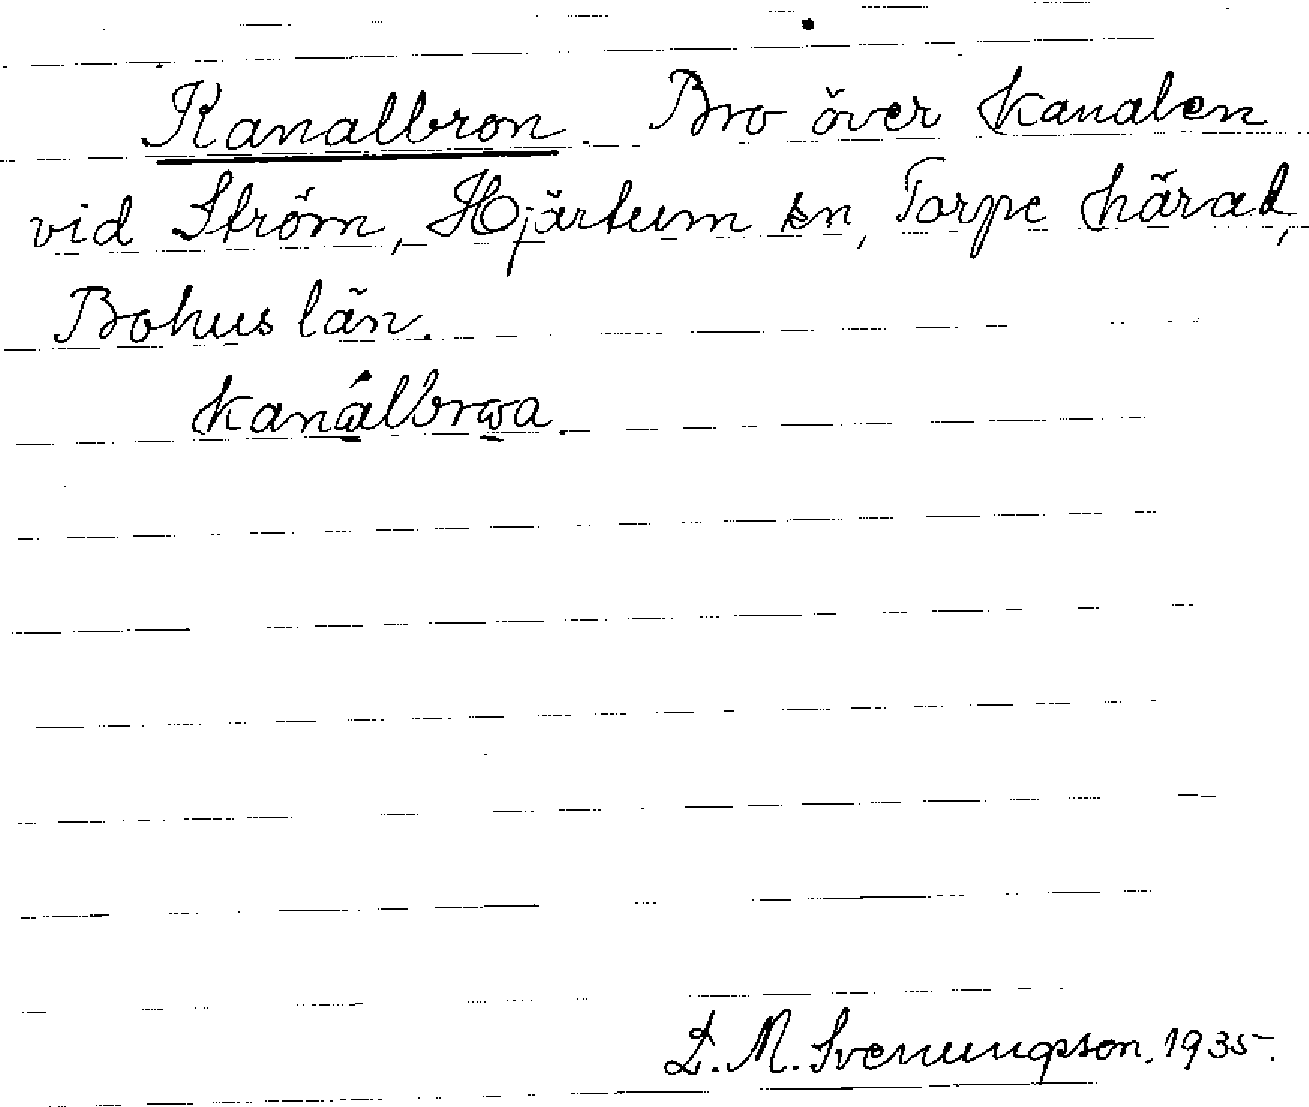 Kanalbron Bro över kanalen
vid Ström, Hjärtum sn, Torpe härad,
Bohus län.
kanálbrωa.
D. M. Svenungsson. 1935.